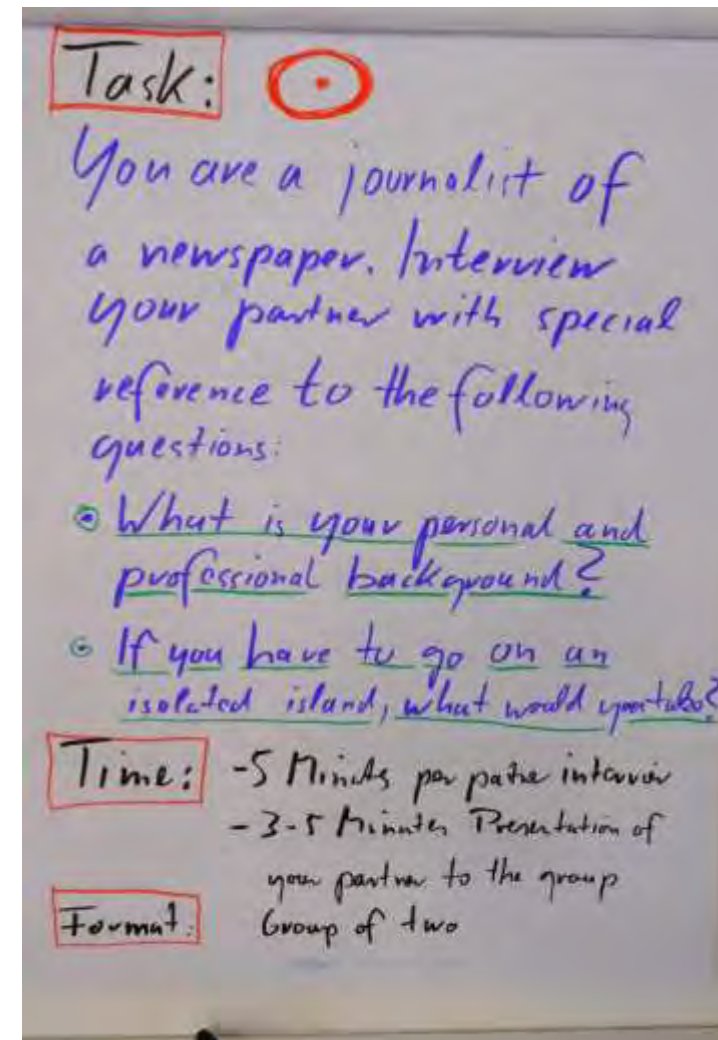 Task:
You are a journalist of
a newspaper. Interview
your partner with special
reference to the following
questions:
What is your personal and
professional background?
If you have to go on an
isolated island, what would you take?
Time: -5 Minuts per interview
-3-5 Minutes Presentation of
your partner to the group
Format: Group of two